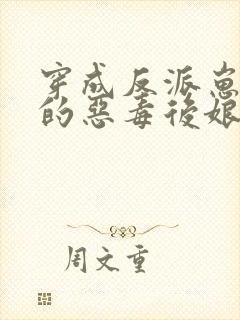 穿成反派崽
的惡毒後娘
周文重